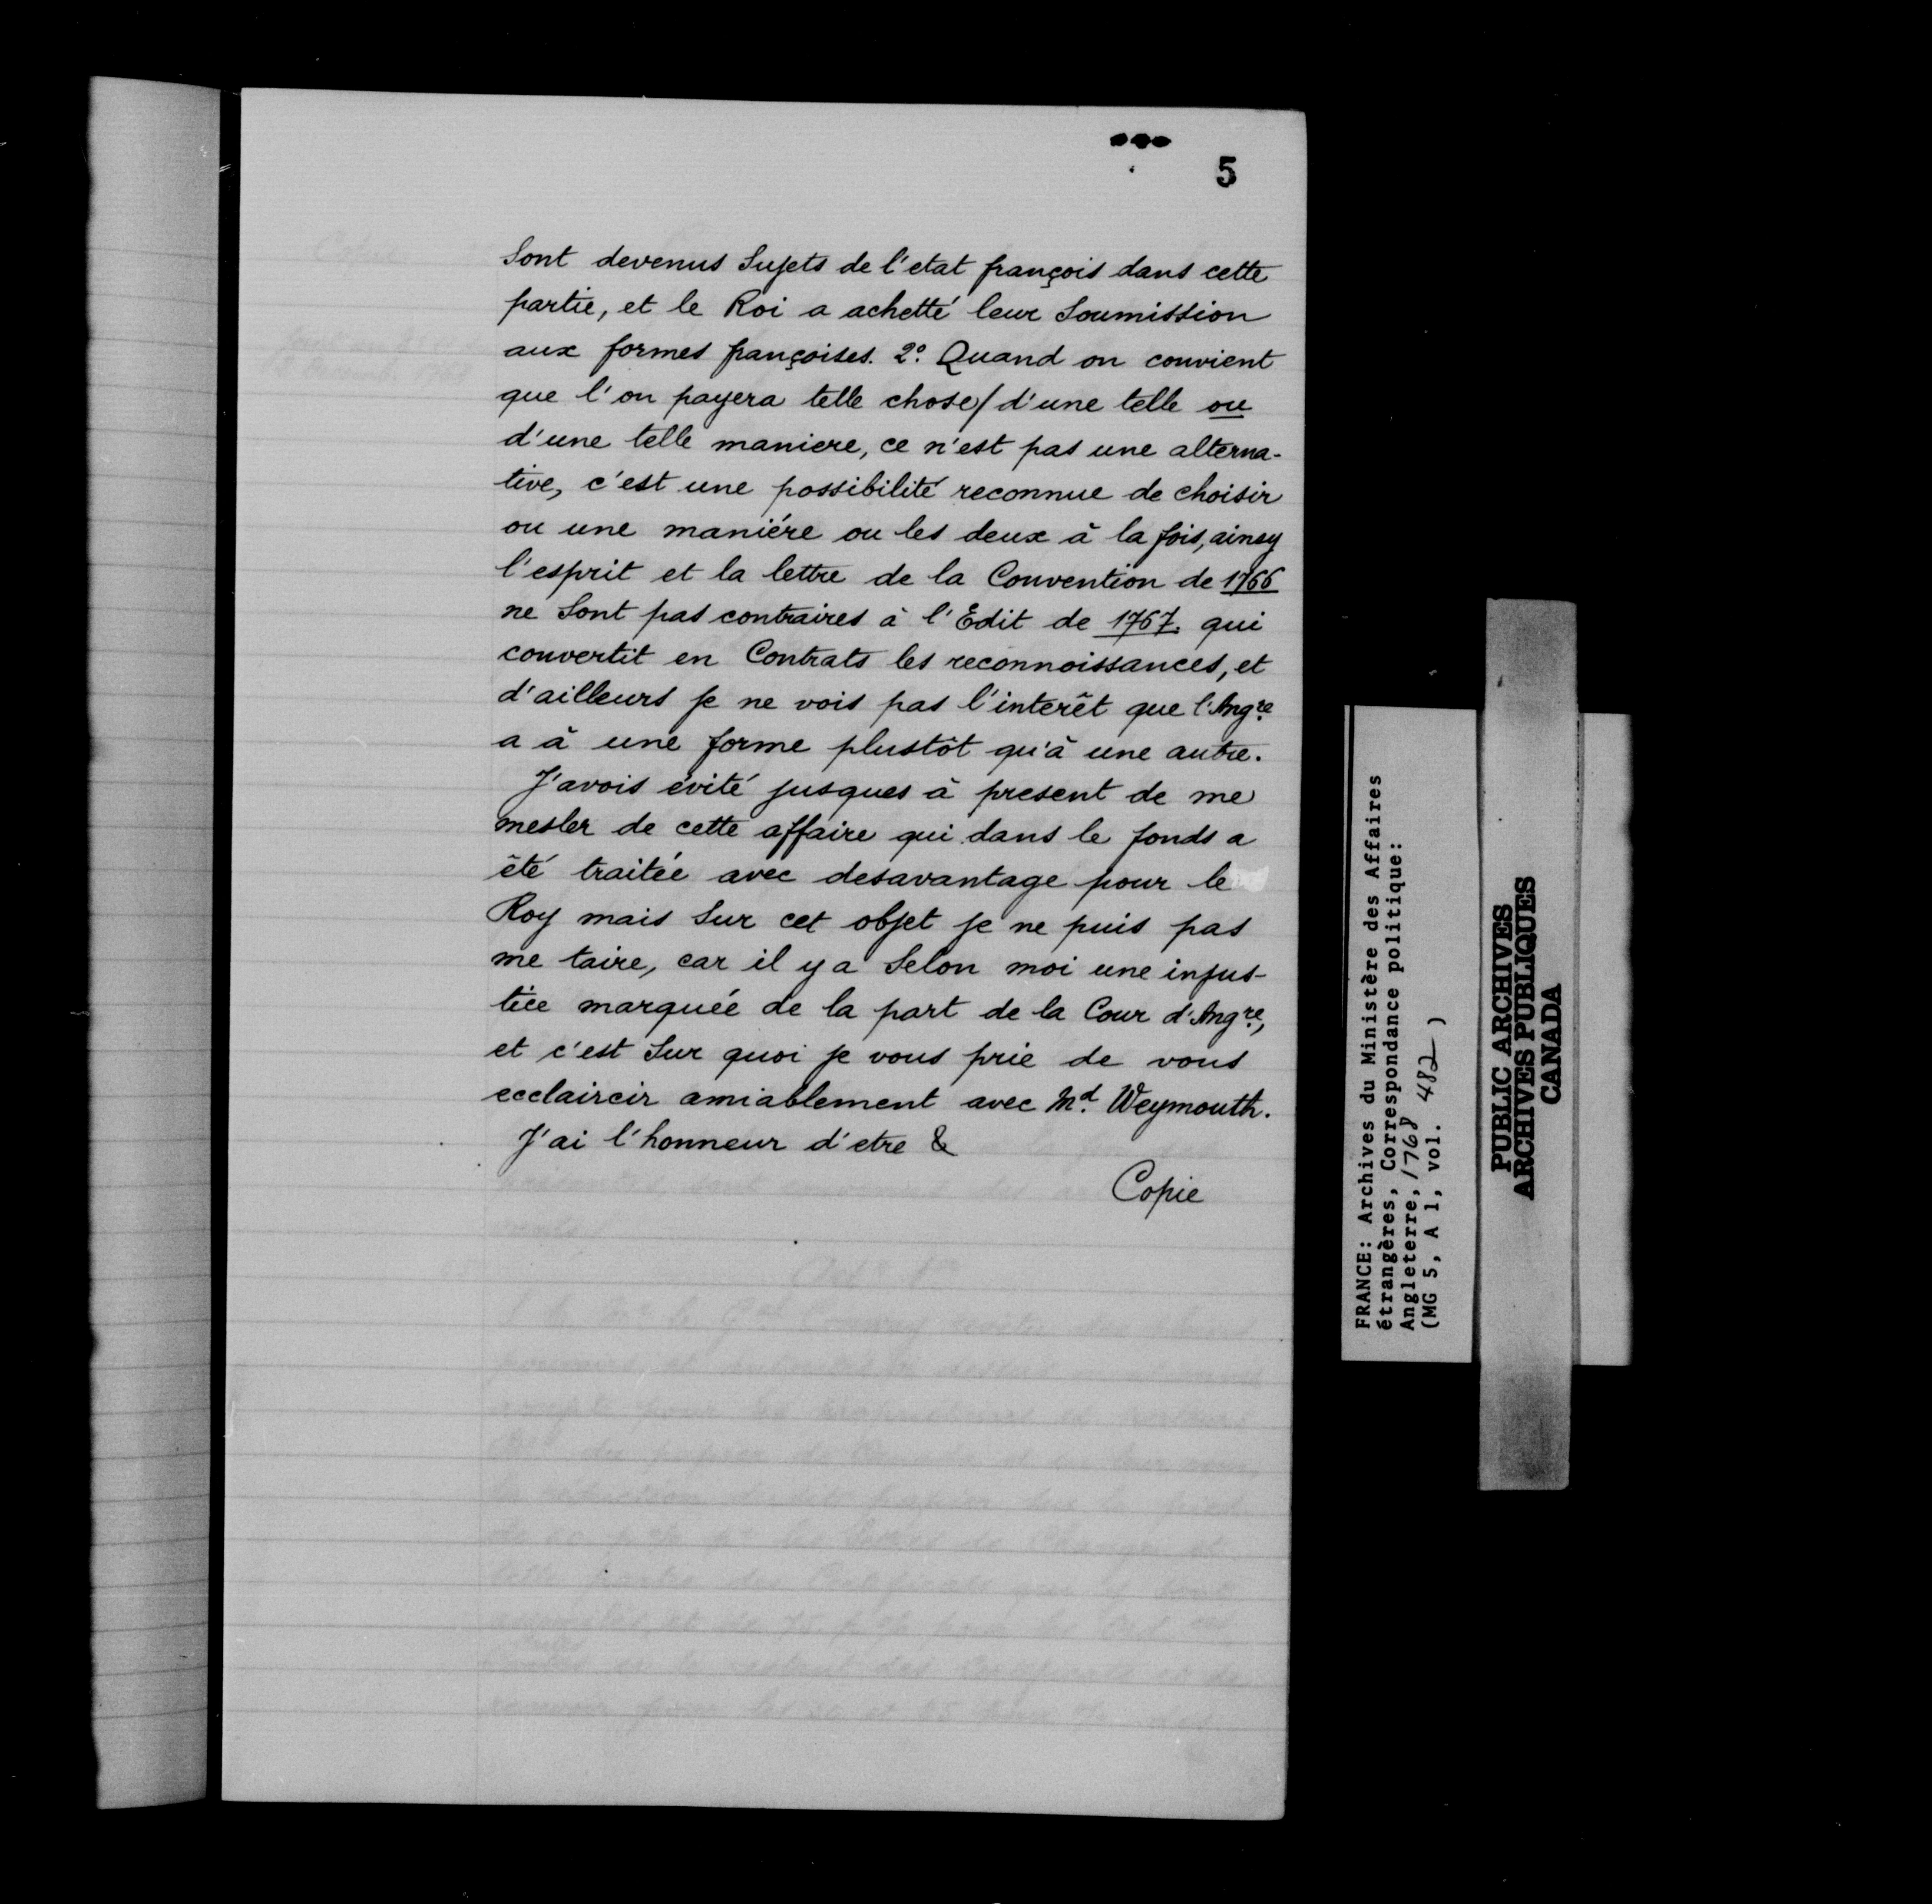 5
Sont devenus Sujets de l'etat françois dans cette
partie, et le Roi a achetté leur Soumission
aux formes françoises. 2º Quand on convient
que l'on payera telle chose/d'une telle ou
d'une telle maniere, ce n'est pas une alterna-
tive, c'est une possibilité reconnue de choisir
ou une maniére ou les deux à la fois, ainsy
l'esprit et la lettre de la Convention de 1766
ne Sont pas contraires à l'Edit de 1767. qui
convertit en Contrats les reconnoissances, et
d'ailleurs je ne vois pas l'interêt que l'Angre
a à une forme plustôt qu'à une autre.
J'avois évité jusques à present de me
mesler de cette affaire qui dans le fonds a
été traitée avec desavantage pour le
Roy mais Sur cet objet je ne puis pas
me taire, car il y a Selon moi une injus-
tice marquée de la part de la Cour d'Angre,
et c'est Sur quoi je vous prie de vous
ecclaircir amiablement avec Md. Weymouth.
J'ai l'honneur d'etre &
Copie
FRANCE: Archives du Ministère des Affaires
étrangères, Correspondance politique:
Angleterre, 1768
(MG 5, A 1, vol. 482 )
PUBLIC ARCHIVES
ARCHIVES PUBLIQUES
CANADA